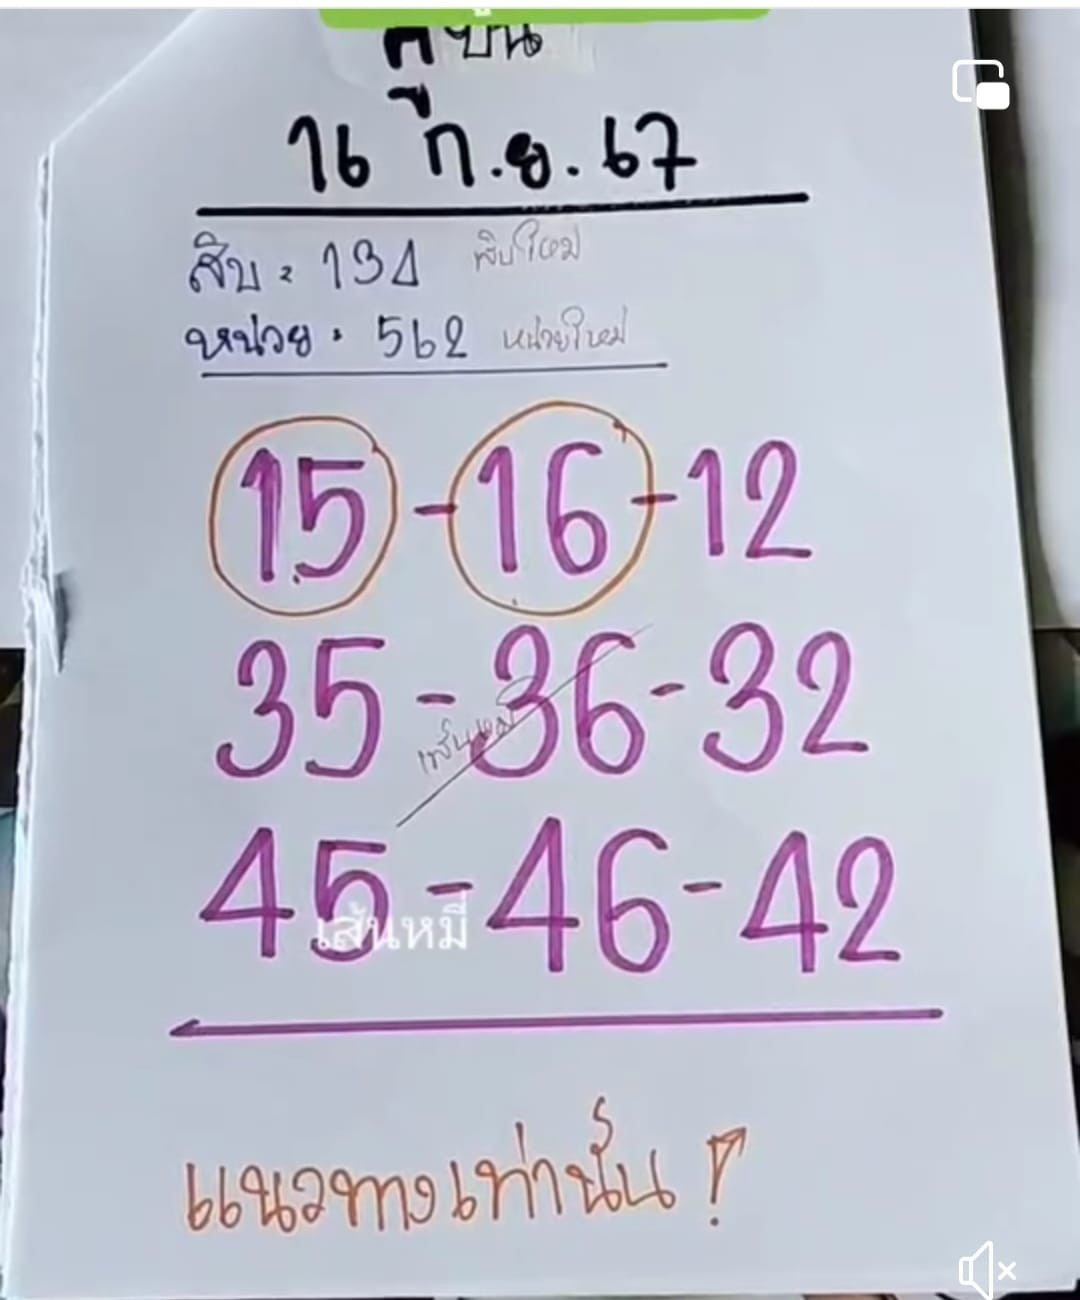 คู่บน
16 ก.ย. 67
สิบ = 134 สิบใหม่
หน่วย = 562 หน่วยใหม่
15 - 16 - 12
35 - 36 - 32
เส้นหมี่
45 - 46 - 42
เส้นหมี่
แนวทางเท่านั้น !